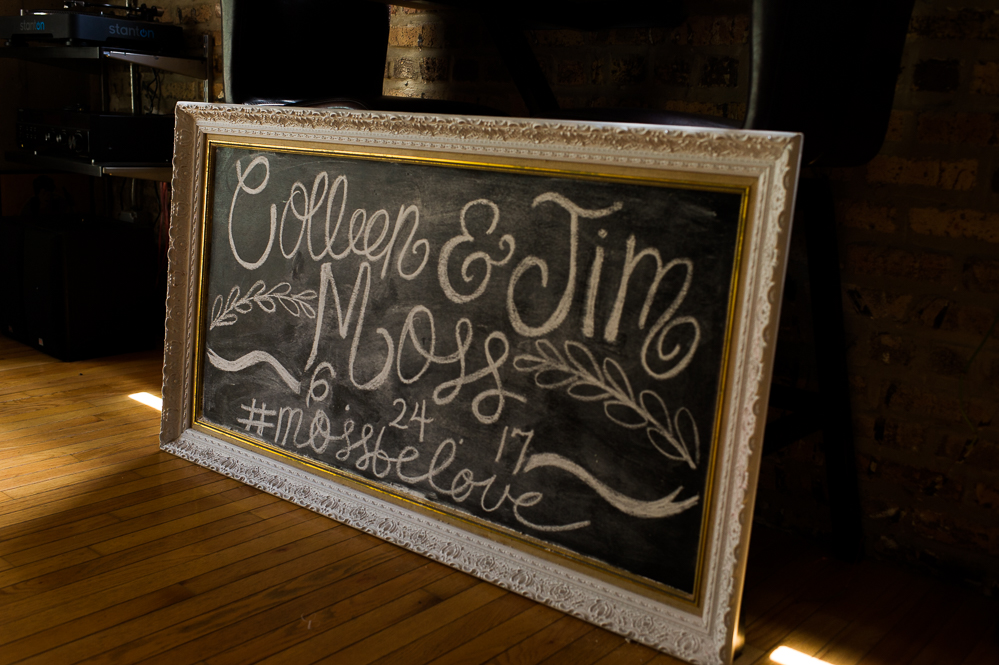 stanton
stanton
Colleen & Jim
Moss
6 24 17
#mossbelove